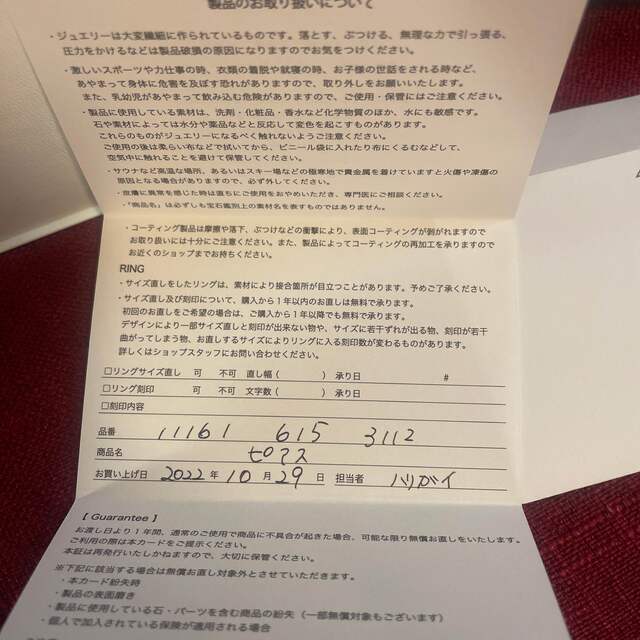 製品のお取り扱いについて
・ジュエリーは大変繊細に作られているものです。落とす、ぶつける、無理な力で引っ張る、
圧力をかけるなどは製品破損の原因になりますのでお気をつけください。
・激しいスポーツや力仕事の時、衣類の着脱や就寝の時、お子様の世話をされる時など、
あやまって身体に危害を及ぼす恐れがありますので、取り外しをお願いいたします。
また、乳幼児があやまって飲み込む危険がありますので、ご使用・保管にはご注意ください。
・製品に使用している素材は、洗剤・化粧品・香水など化学物質のほか、水にも敏感です。
石や素材によっては水分や薬品などと反応して変色を起こすものがあります。
これらのものがジュエリーになるべく触れないようご注意ください。
ご使用の後は柔らい布などで拭いてから、ビニール袋に入れたり布にくるむなどして、
空気中に触れることを避けて保管してください。
・サウナなど高温な場所、あるいはスキー場などの極寒地で貴金属を着けていますと火傷や凍傷の
原因となる場合がありますので、必ず外してください。
・皮膚に異常を感じた時は直ちにご使用をおやめいただき、専門医にご相談ください。
・「商品名」は必ずしも宝石鑑別上の素材名を表すものではありません。
・コーティング製品は摩擦や落下、ぶつけなどの衝撃により、表面コーティングが剥がれますので
お取り扱いには十分にご注意ください。また、製品によってコーティングの再加工を承りますので
お近くのショップまでお持ちください。
RING
・サイズ直しをしたリングは、素材により接合箇所が目立つことがあります。予めご了承ください。
・サイズ直し及び刻印について、購入から1年以内のお直しは無料で承ります。
初回のお直しをご希望の場合は、ご購入から1年以降でも無料で承ります。
デザインにより一部サイズ直しと刻印が出来ない物や、サイズに若干ずれが出る物、刻印が若干
曲がってしまう物、お直しするサイズによりリングに入る刻印数が変わるものがあります。
詳しくはショップスタッフにお問い合わせください。
□リングサイズ直し 可 不可 直し幅( ) 承り日 #
□リング刻印 可 不可 文字数( ) 承り日
□刻印内容
品番 11161 615 3112
商品名 ピアス
お買い上げ日 2022年 10月 29日 担当者 ハリガイ
【 Guarantee 】
お渡し日より1年間、通常のご使用で商品に不具合が起きた場合、可能な限り無償お直しをいたします。
ご利用の際は本カードをご提示ください。
本証は再発行いたしかねますので、大切に保管ください。
※下記に該当する場合は無償お直し対象外とさせていただきます。
・本カード紛失時
・製品の表面磨き
・製品に使用している石・パーツを含む商品の紛失(一部無償対象もございます)
・個人で加入されている保険が適用される場合